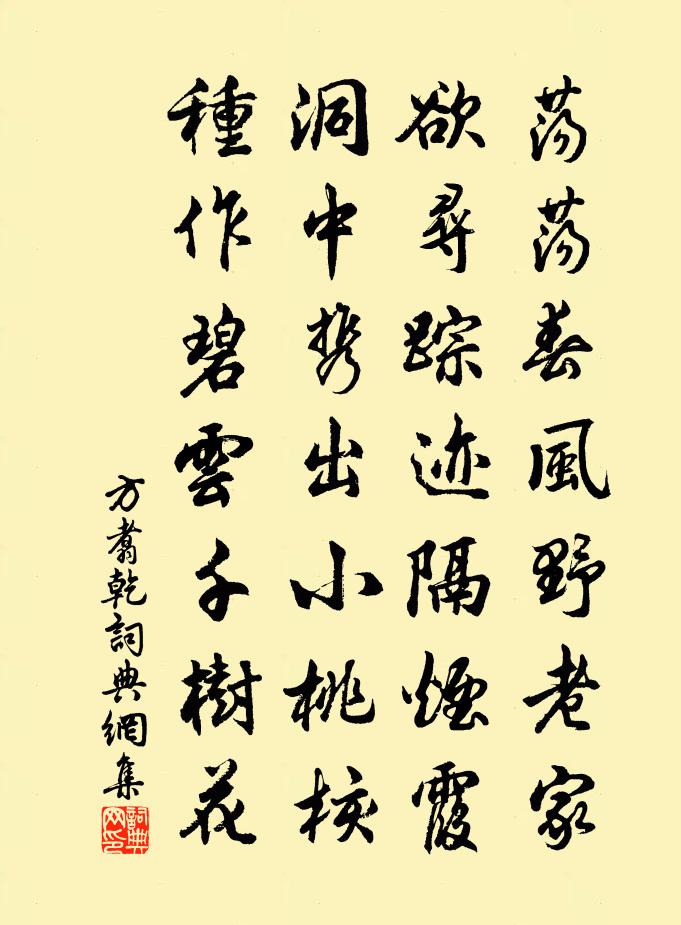 蕩蕩春風野老家
欲尋踪迹隔煙霞
洞中携出小桃核
種作碧雲千樹花
方翥乾詞典網集
詞典網印